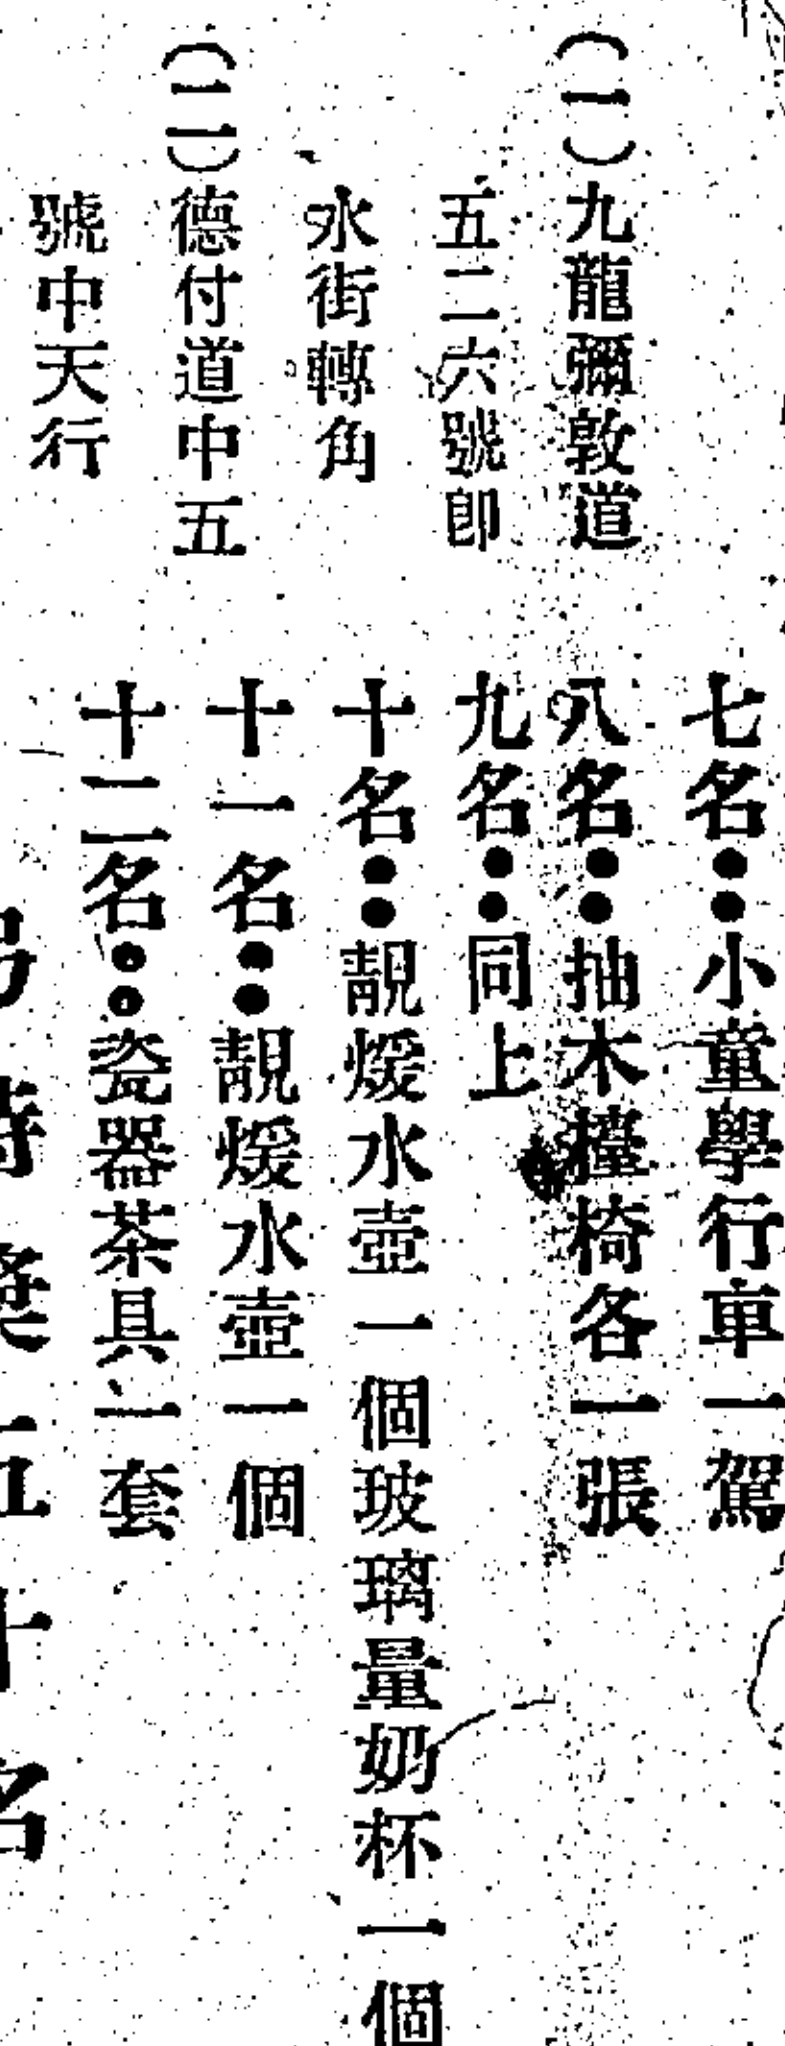 （一）九龍彌敦道
五二六號即
水街轉角
（二）德付道中五
號中天行
七名：小童學行車一駕
八名：抽木檯椅各一張
九名：同上
十名：靚煖水壺一個玻璃量奶杯一個
十一名：靚煖水壺一個
十二名：瓷器茶具一套
五十名